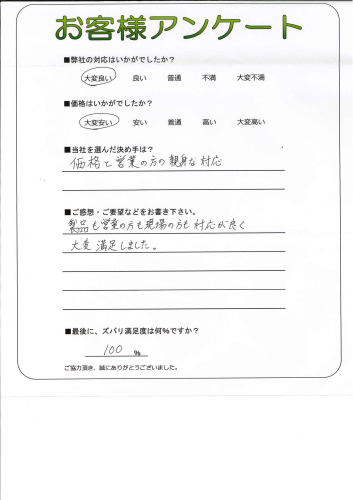 お客様アンケート
■弊社の対応はいかがでしたか?
大変良い 良い 普通 不満 大変不満
■価格はいかがでしたか?
大変安い 安い 普通 高い 大変高い
■当社を選んだ決め手は?
価格と営業の方の親身な対応
■ご感想・ご要望などをお書き下さい。
製品も営業の方も現場の方も対応が良く
大変満足しました。
■最後に、ズバリ満足度は何%ですか?
100 %
ご協力頂き、誠にありがとうございました。